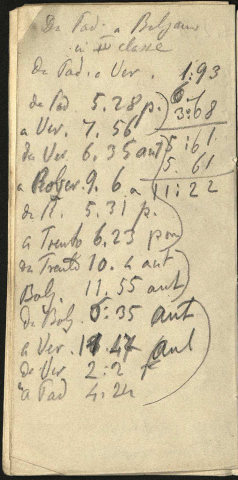 Da Pad. a Bolzano
in III classe
da Pad. a Ver. 1:93
6
da Pad 5.28 p. 3:68
a Ver. 7.56 5:61
da Ver. 6.35 aut 5.61
a 9.6. a 11:22
da R. 5.31 p.
a Trento 6.23 pom
da Trento 10.4 aut
Bolz. 11.55 aut
da Bolz. 5:35 aut
a Ver. 47 aut
da Ver 2:2
a Pad 4:24